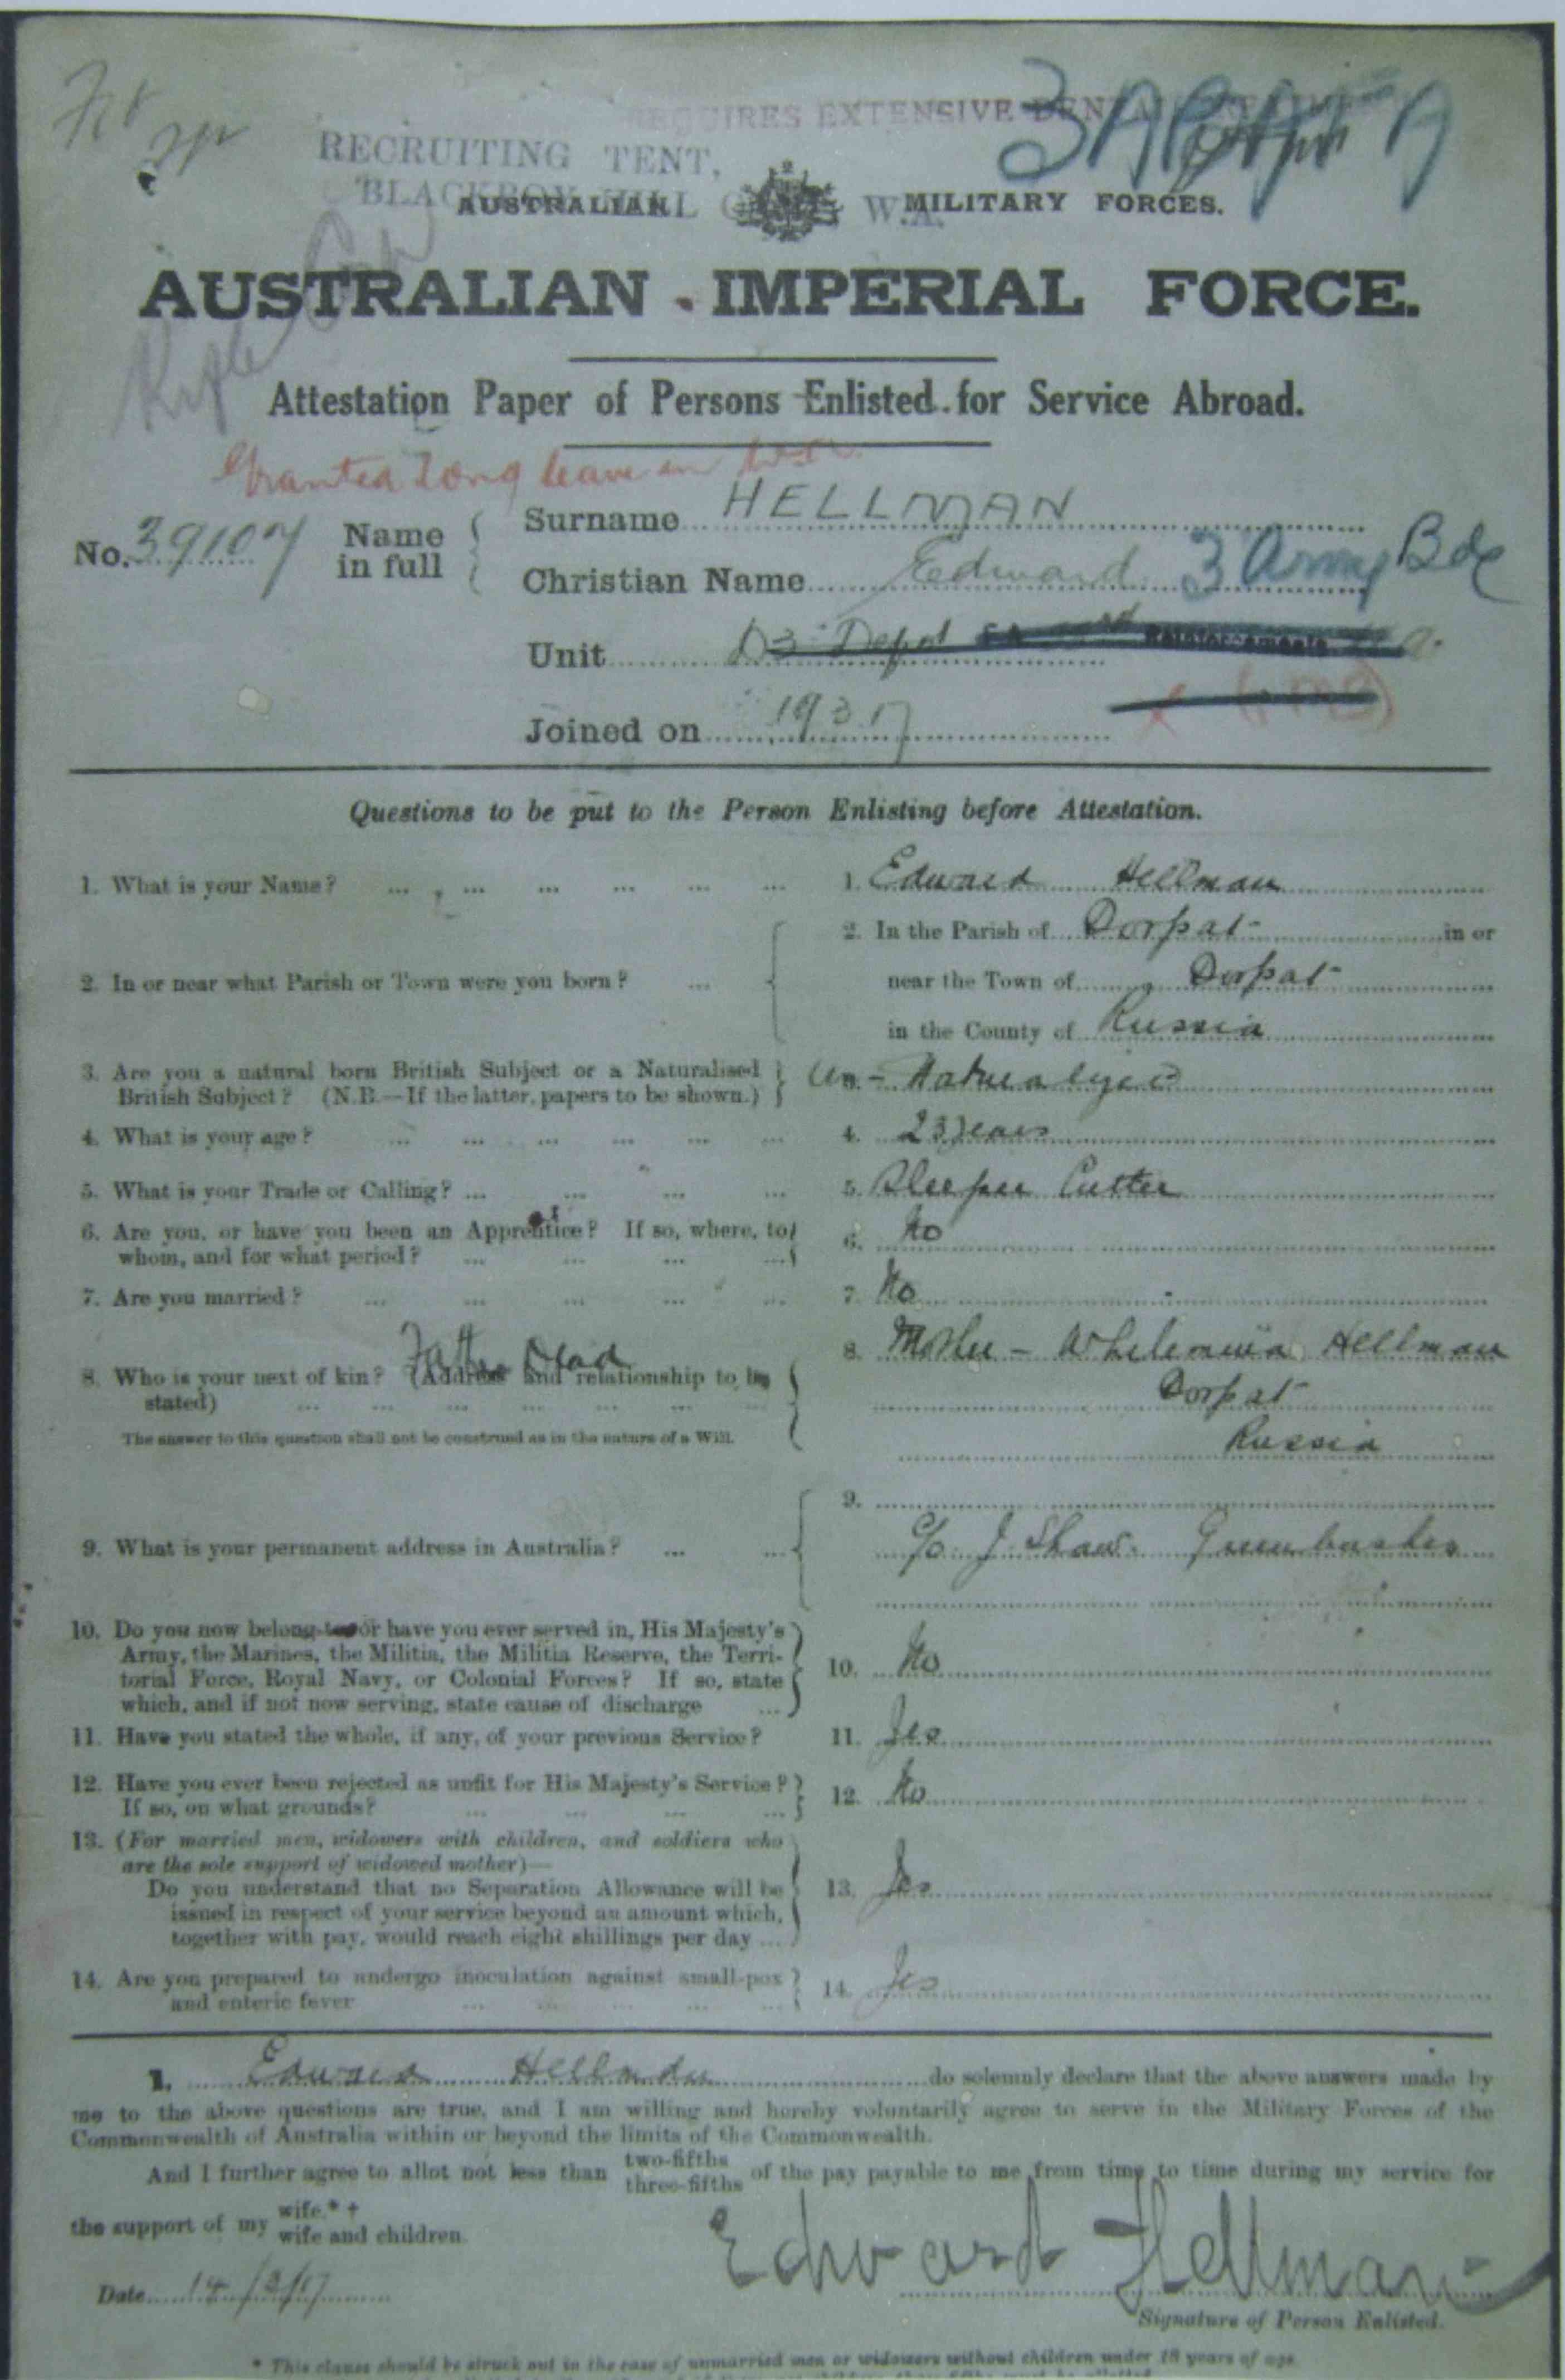 REQUIRES EXTENSIVE
RECRUITING TENT,
BLACKBOY HILL W.A.
AUSTRALIAN MILITARY FORCES.
AUSTRALIAN IMPERIAL FORCE.
Rifle
Attestation Paper of Persons Enlisted for Service Abroad.
Granted Long leave in
No. 39107 Name in full { Surname HELLMAN
Christian Name Edward 3 Army Bde
Unit D3 Depot Reinforcements
Joined on 19 3 17
Questions to be put to the Person Enlisting before Attestation.
1. What is your Name? ... 1. Edward Hellman
2. In or near what Parish or Town were you born? ... 2. In the Parish of Dorpat in or
near the Town of Dorpat
in the County of Russia
3. Are you a natural born British Subject or a Naturalised
British Subject? (N.B.—If the latter, papers to be shown.) Un-
4. What is your age? ... 4. 23 years
5. What is your Trade or Calling? ... 5. Sleeper Cutter
6. Are you, or have you been an Apprentice? If so, where, to
whom, and for what period? ... 6. No
7. Are you married? ... 7. No
Father Dead
8. Who is your next of kin? (Address and relationship to be
stated) ... 8. Mother - Hellman
Dorpat
The answer to this question shall not be construed as in the nature of a Will.
Russia
9. What is your permanent address in Australia? ... 9. c/o J Shaw Greenbushes
10. Do you now belong to, or have you ever served in, His Majesty's
Army, the Marines, the Militia, the Militia Reserve, the Terri-
torial Force, Royal Navy, or Colonial Forces? If so, state
which, and if not now serving, state cause of discharge ... 10. No
11. Have you stated the whole, if any, of your previous Service? 11. Yes
12. Have you ever been rejected as unfit for His Majesty's Service?
If so, on what grounds? ... 12. No
13. (For married men, widowers with children, and soldiers who
are the sole support of widowed mother)—
Do you understand that no Separation Allowance will be
issued in respect of your service beyond an amount which,
together with pay, would reach eight shillings per day ... 13. Yes
14. Are you prepared to undergo inoculation against small-pox
and enteric fever ... 14. Yes
I, Edward Hellman do solemnly declare that the above answers made by
me to the above questions are true, and I am willing and hereby voluntarily agree to serve in the Military Forces of the
Commonwealth of Australia within or beyond the limits of the Commonwealth.
And I further agree to allot not less than two-fifths three-fifths of the pay payable to me from time to time during my service for
the support of my wife.* † wife and children.
Edward Hellman
Date 14/3/17
Signature of Person Enlisted.
* This clause should be struck out in the case of unmarried men or widowers without children under 18 years of age.